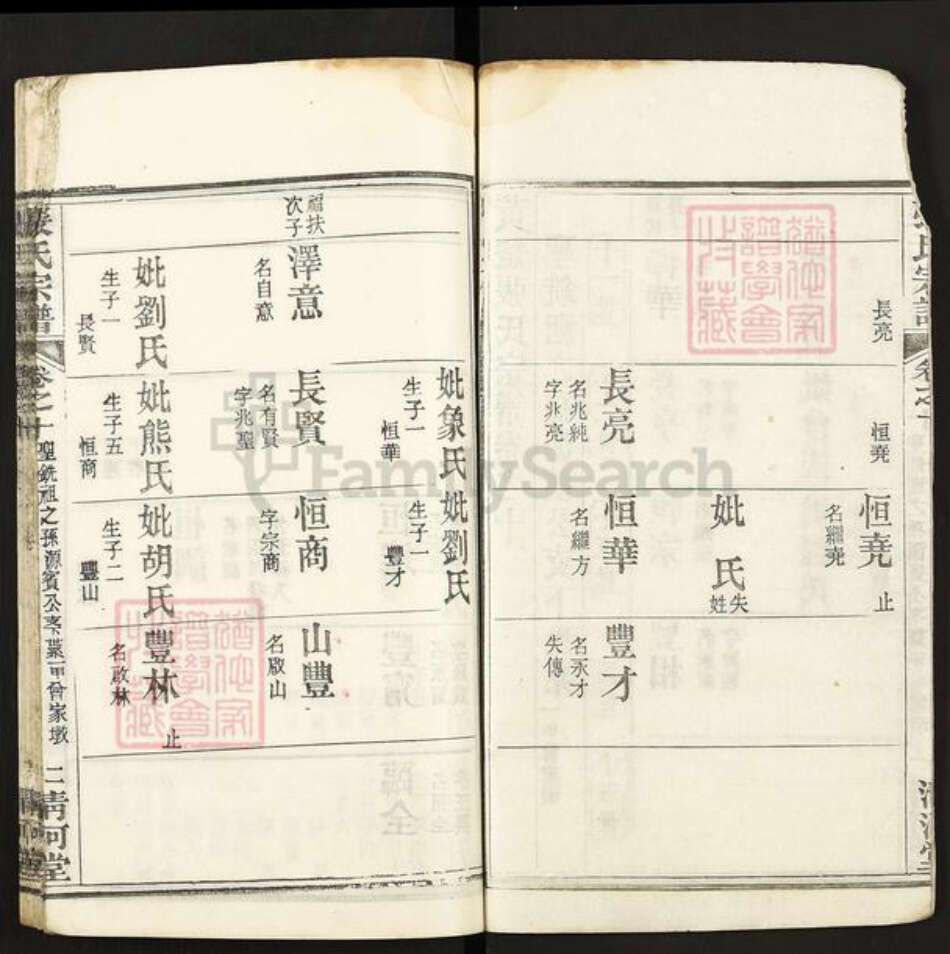 長亮
恒堯
恒堯
名繼堯
止
妣 氏
失姓
長亮
名兆純
字兆亮
恒華
名繼方
豐才
名永才
失傳
妣象氏
生子一
恒華
妣劉氏
生子一
豐才
福扶
次子
澤意
名自意
長賢
名有賢
字兆聖
恒商
字宗商
山豐
名啟山
妣劉氏
生子一
長賢
妣熊氏
生子五
恒商
妣胡氏
生子二
豐山
豐林
名啟林
止
張氏宗譜
卷之十
聖銑祖之孫源賓公
曾家墩
二
清河堂
FamilySearch